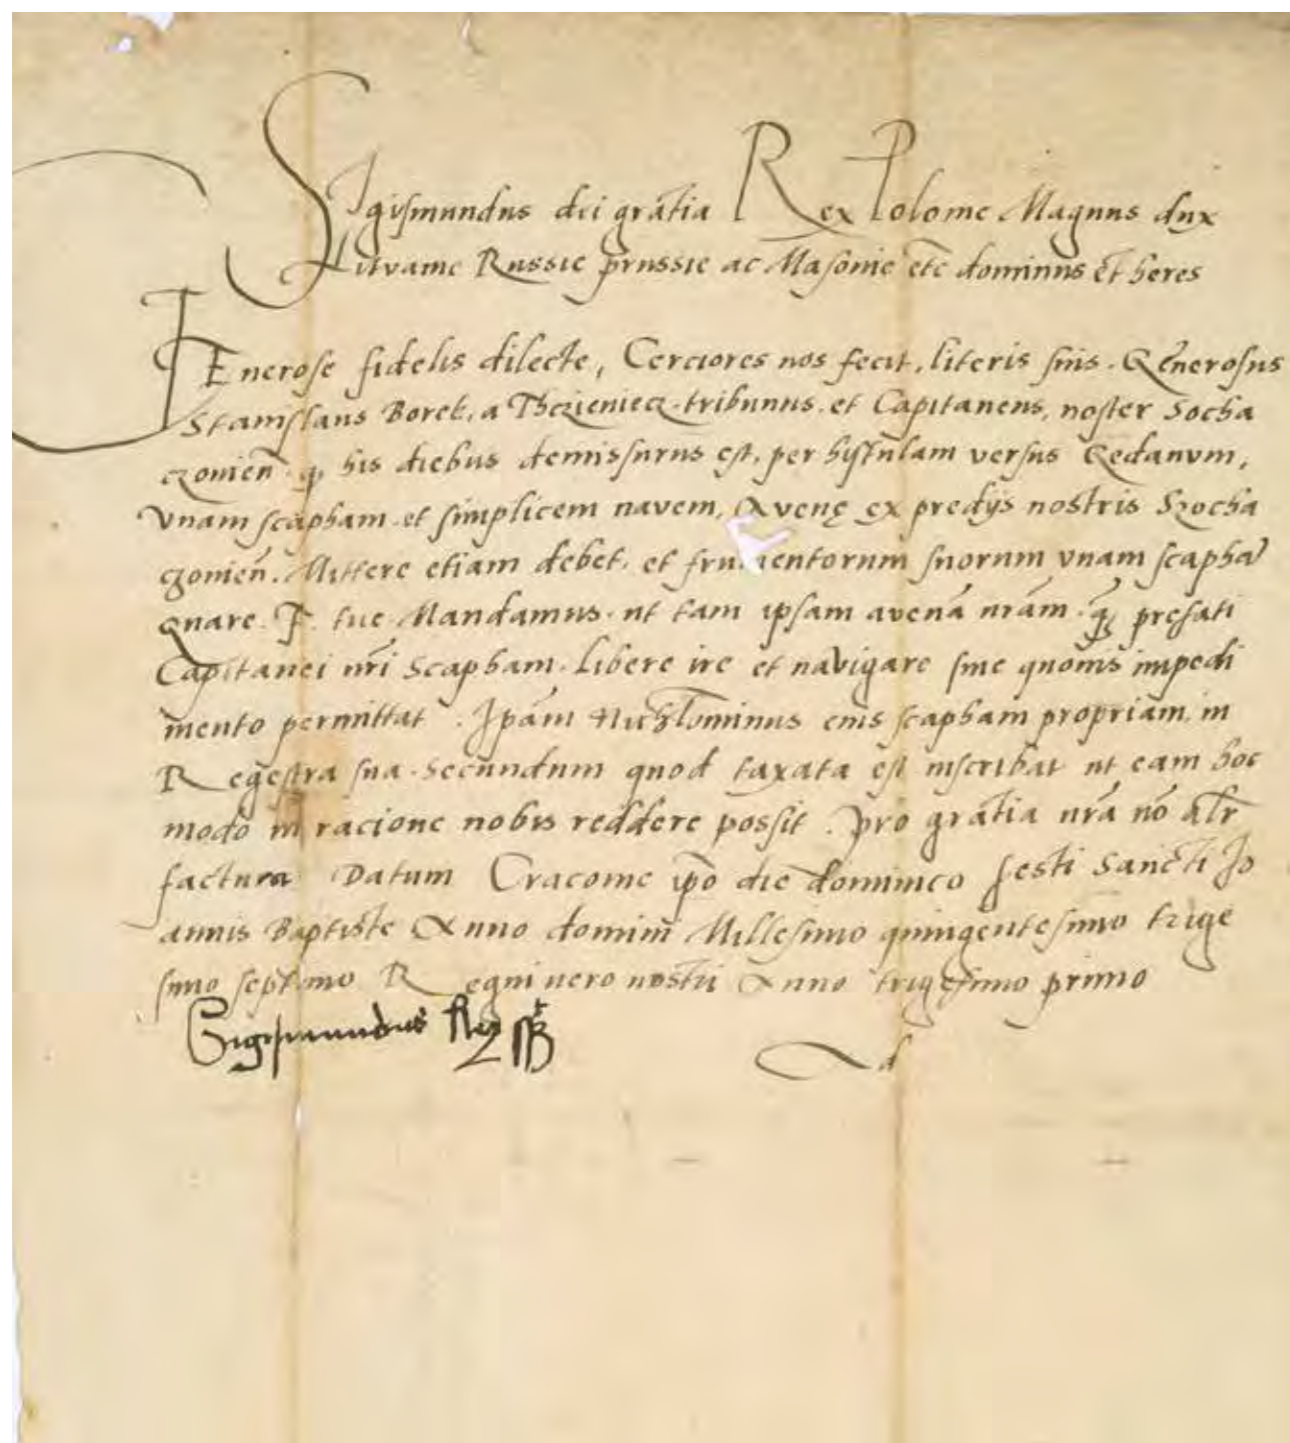 Sigismundus dei gratia Rex Polonie Magnus dux
Litvanie Russie prussie ac Masonie etc dominus et heres
GEnerose fidelis dilecte, Cerciores nos fecit, literis suis. Generosus
Stanislaus Borek, a Thczieniecz. tribunus. et Capitaneus, noster Socha
czonien̄. q, his diebus demissurus est, per hystulam versus Gedanvm,
Vnam scapham. et simplicem navem, Avenę ex predijs nostris Szocha
czonien̄. Mittere etiam debet. et frumentorum suorum vnam scaphā
quare. F. tue Mandamus. ut tam ipsam avenā nrām. q̄ꝫ prefati
Capitanei nrī scapham. libere ire et navigare sine quovis impedi
mento permittat. Ipām Nichilominus eius scapham propriam, in
Regestra sua. secundum quod taxata est inscribat ut eam hoc
modo in racione nobis reddere possit. pro gratia nrā nō alr̄
factura Datum Cracovie ipō die dominico festi Sancti Jo
annis Baptiste Anno domini Millesimo quingentesimo trige
simo septimo Regni vero nostri Anno trigesimo primo
Sigismundus Rex ss
d